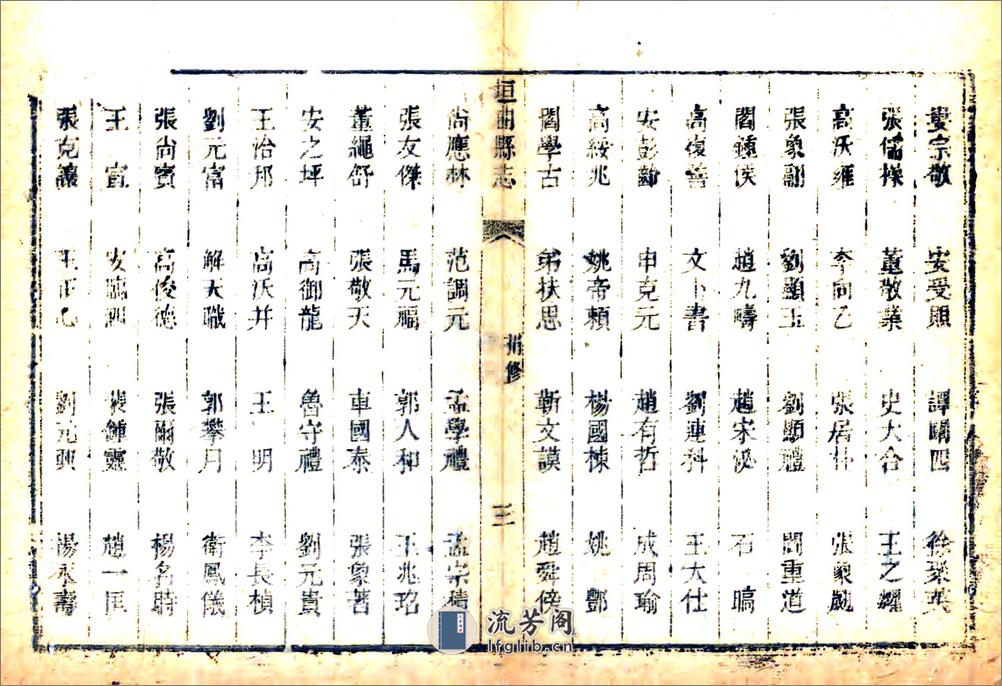 婁宗敬 安受照 譚 四 徐聚英
張儒操 董敬業 史大合 王之耀
高沃雍 李向乙 張居朴 張象觀
張象副 劉顯玉 劉顯禮 閻重道
閻鍾俟 趙九疇 趙宋泌 石 暠
高復善 文卜書 劉連科 王大仕
安彭齡 申克元 趙有哲 成周瑜
高綏兆 姚帝賴 楊國棟 姚 酆
閻學古 弟扶思 靳文謨 趙舜傒
垣曲縣志
捐修
三
尚應林 范調元 孟學禮 孟宗
張友傑 馬元福 郭人和 王兆珆
董繩舒 張敬天 車國泰 張象著
安之坪 高御龍 魯守禮 劉元貴
王怡邦 高沃并 王 明 李長楨
劉元富 解天職 郭攀月 衛鳳儀
張尚賓 高俊德 張爾敬 楊名時
王 宣 安 裴鍾靈 趙一匡
張克讓 王正心 劉元興 楊永壽
流芳阁
lfglib.cn